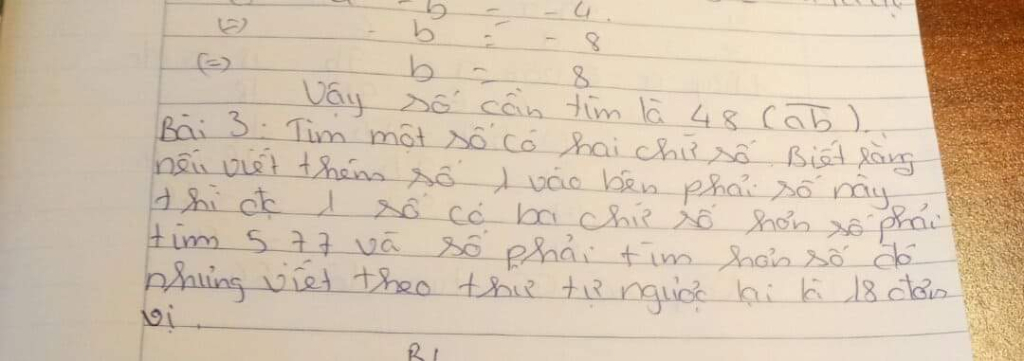 - b = - 4.
(=) - b = - 8
(=) b = 8
Vậy số cần tìm là 48 (ab).
Bài 3: Tìm một số có hai chữ số. Biết rằng
nếu viết thêm số 1 vào bên phải số này
thì đc 1 số có ba chữ số hơn số phải
tìm 577 và số phải tìm hơn số đó
nhưng viết theo thứ tự ngược lại là 18 đơn
vị.